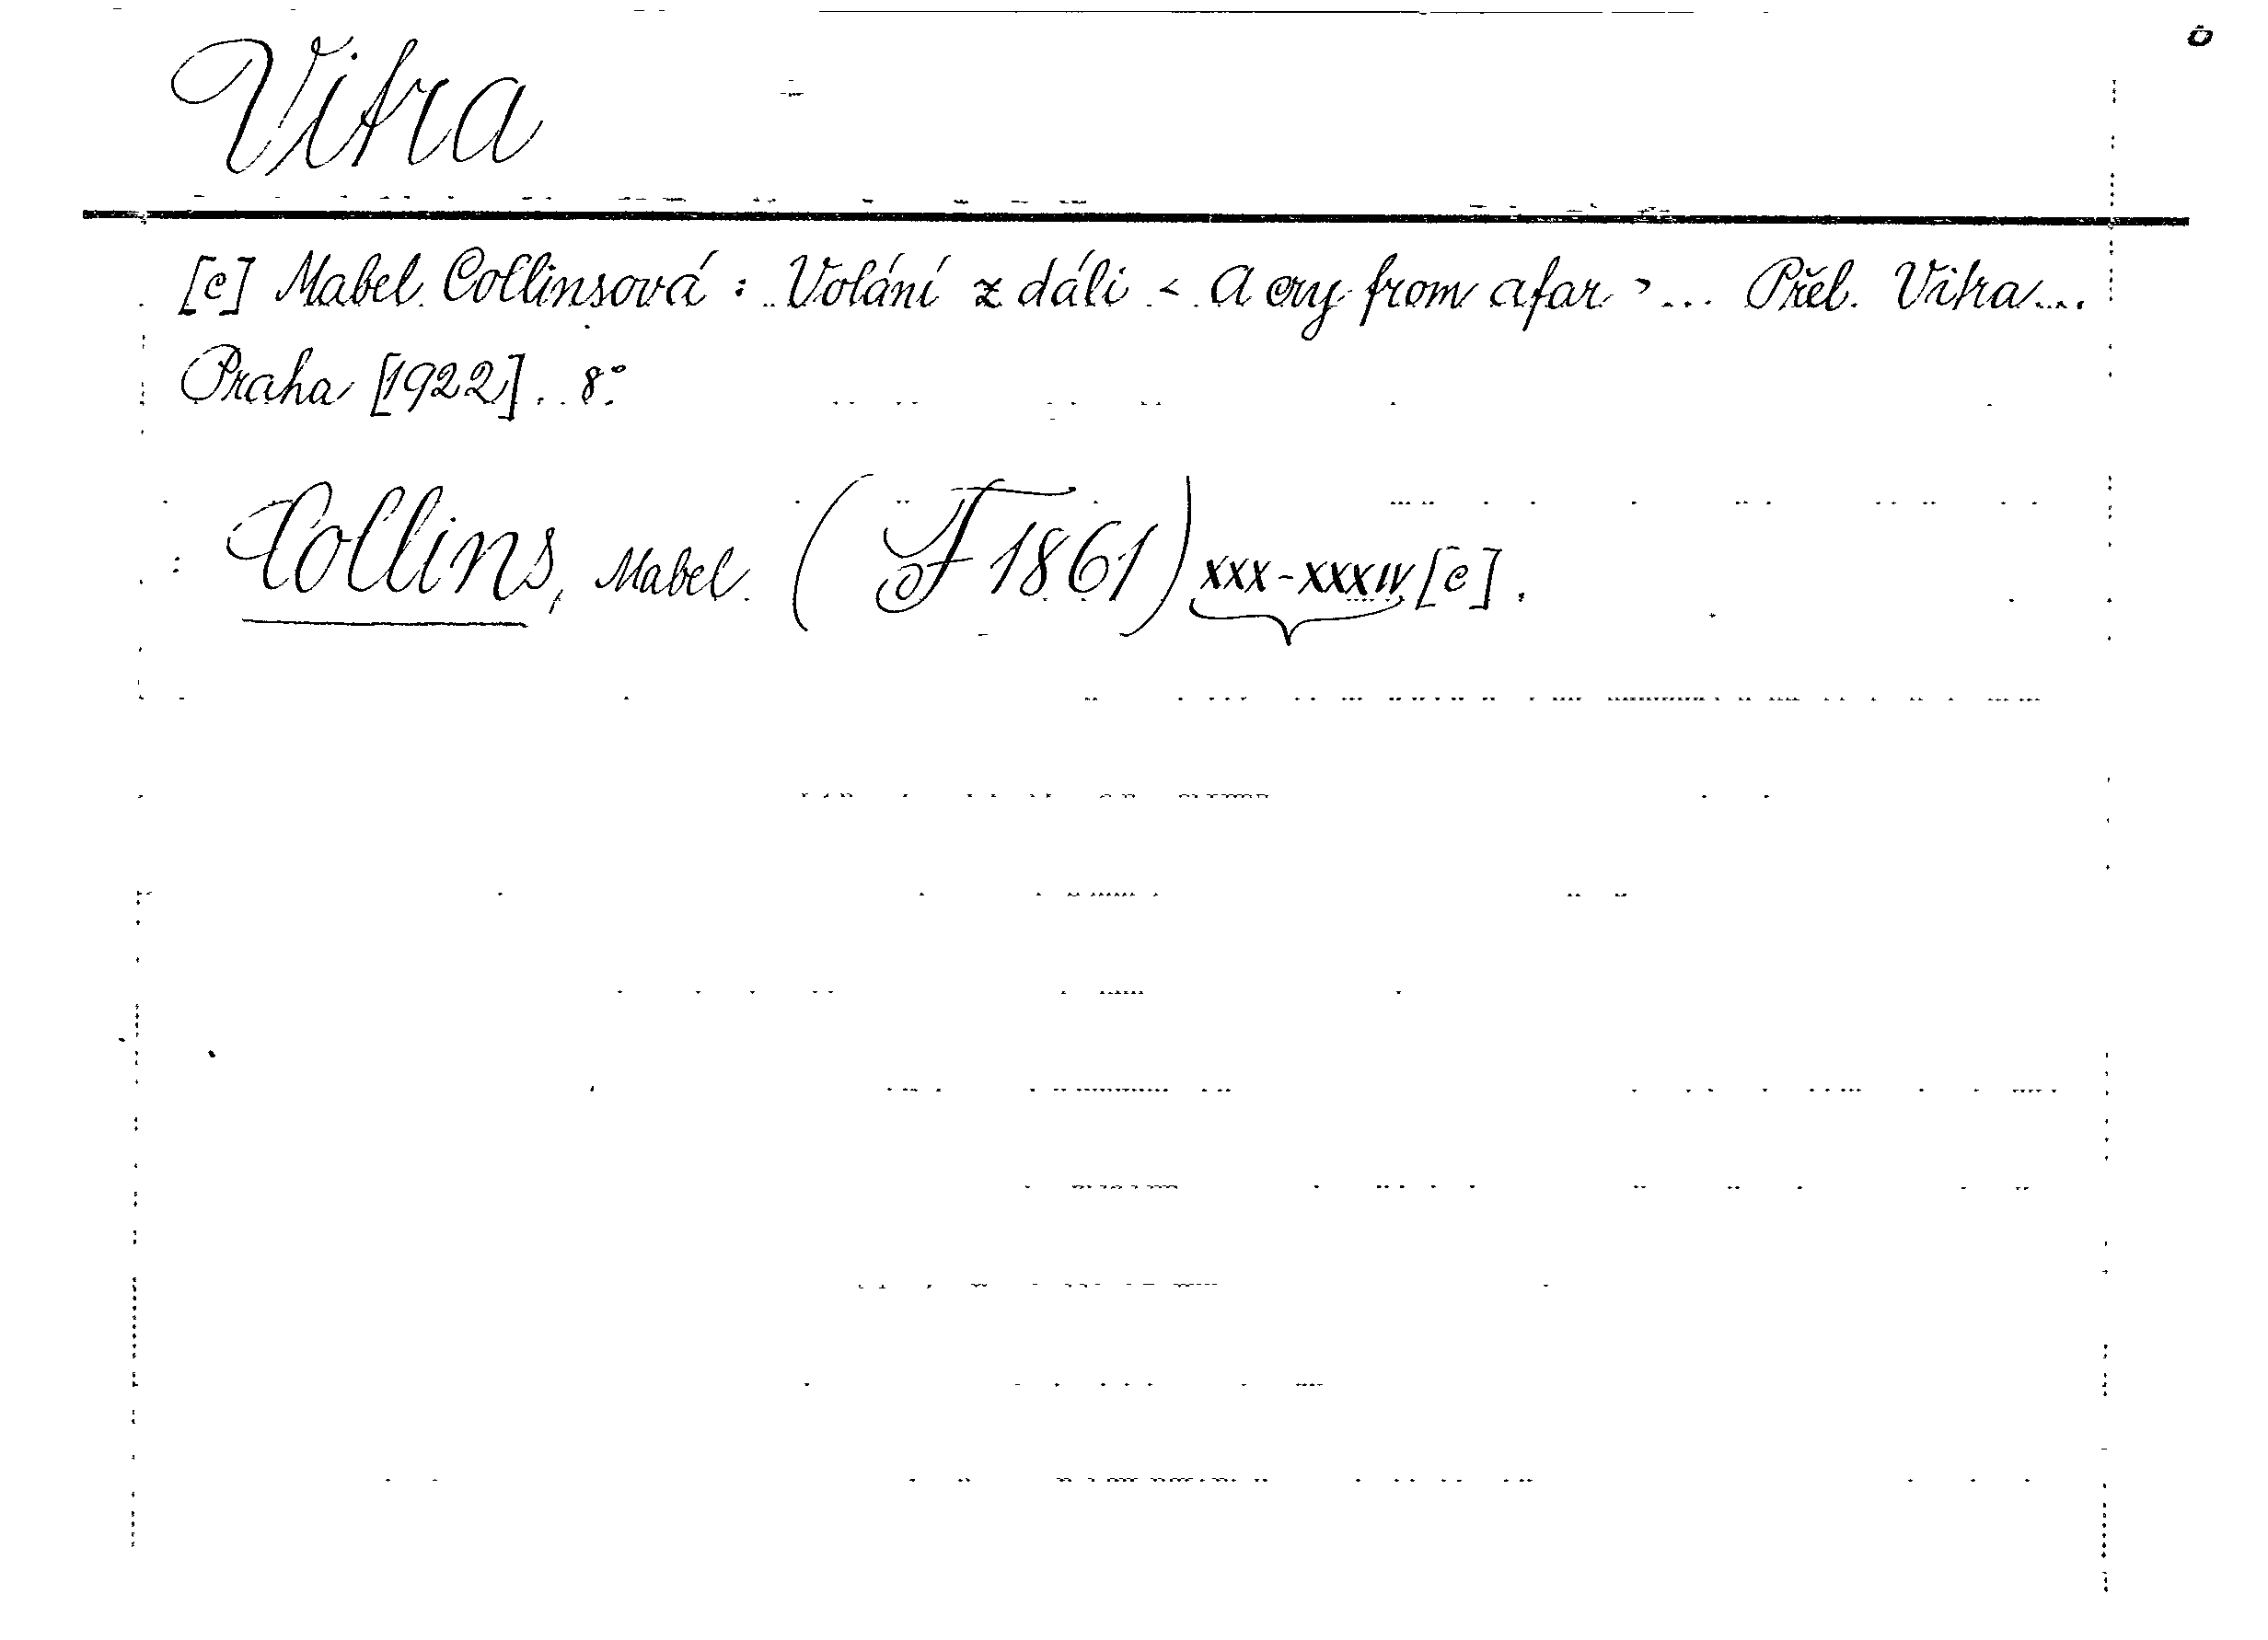 Vitra
[c] Mabel Collinsová : Volání z dáli < A cry from afar > ... Přel. Vitra...
Praha [1922]. 8°.
Collins, Mabel. (F 1861) XXX-XXXIV [c].